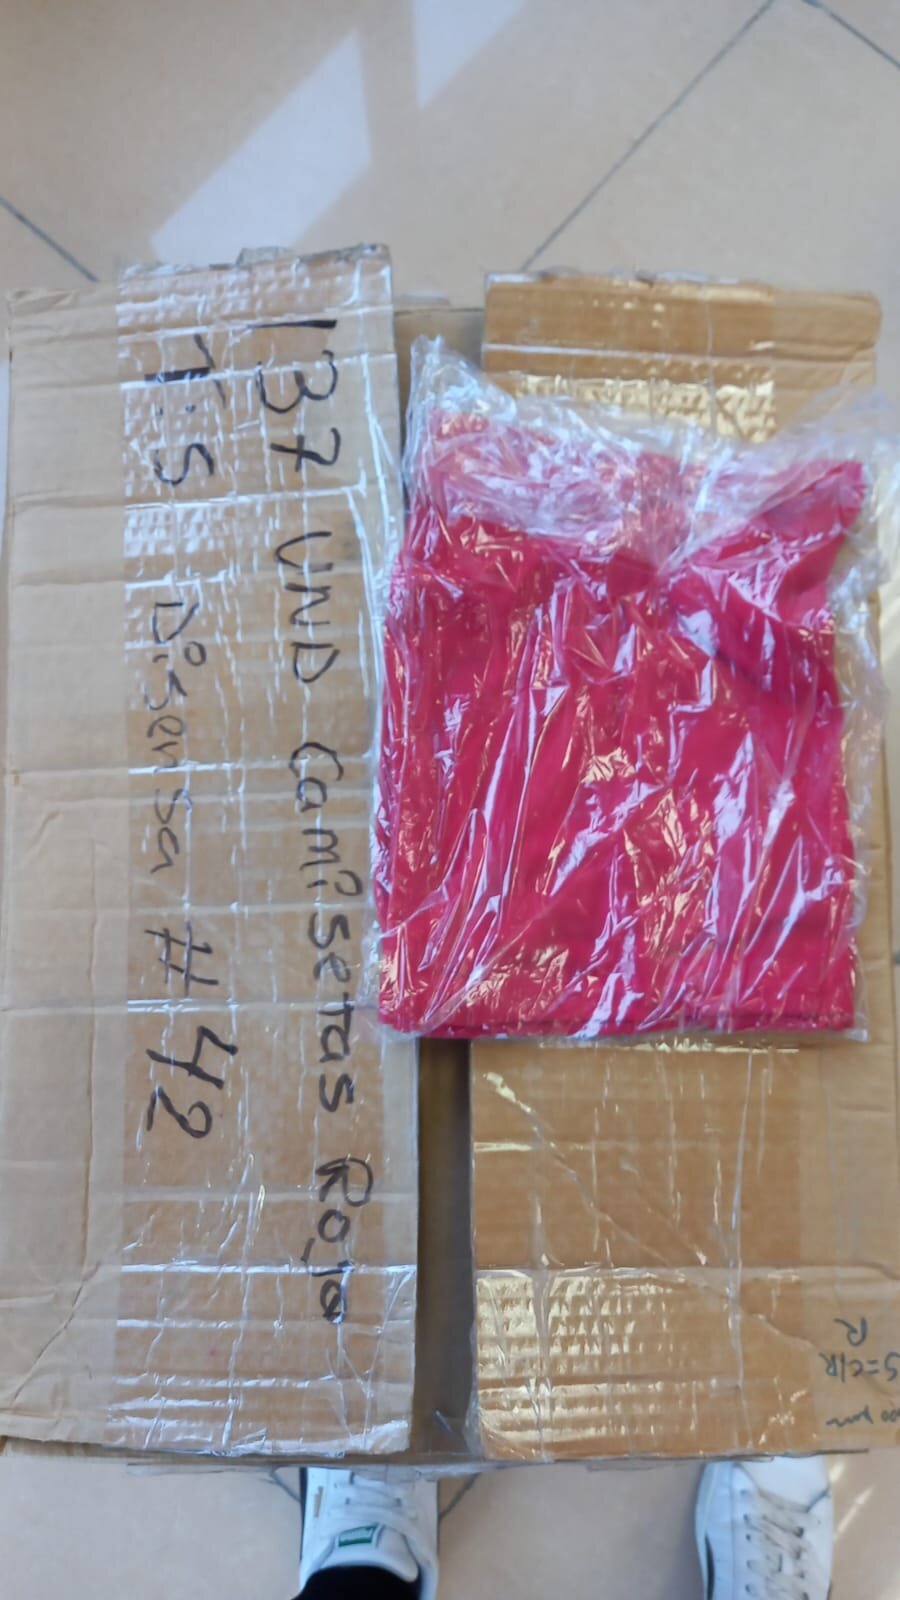 137 UND Camisetas Rojo
T:S Disensa #42
R
S=C/R